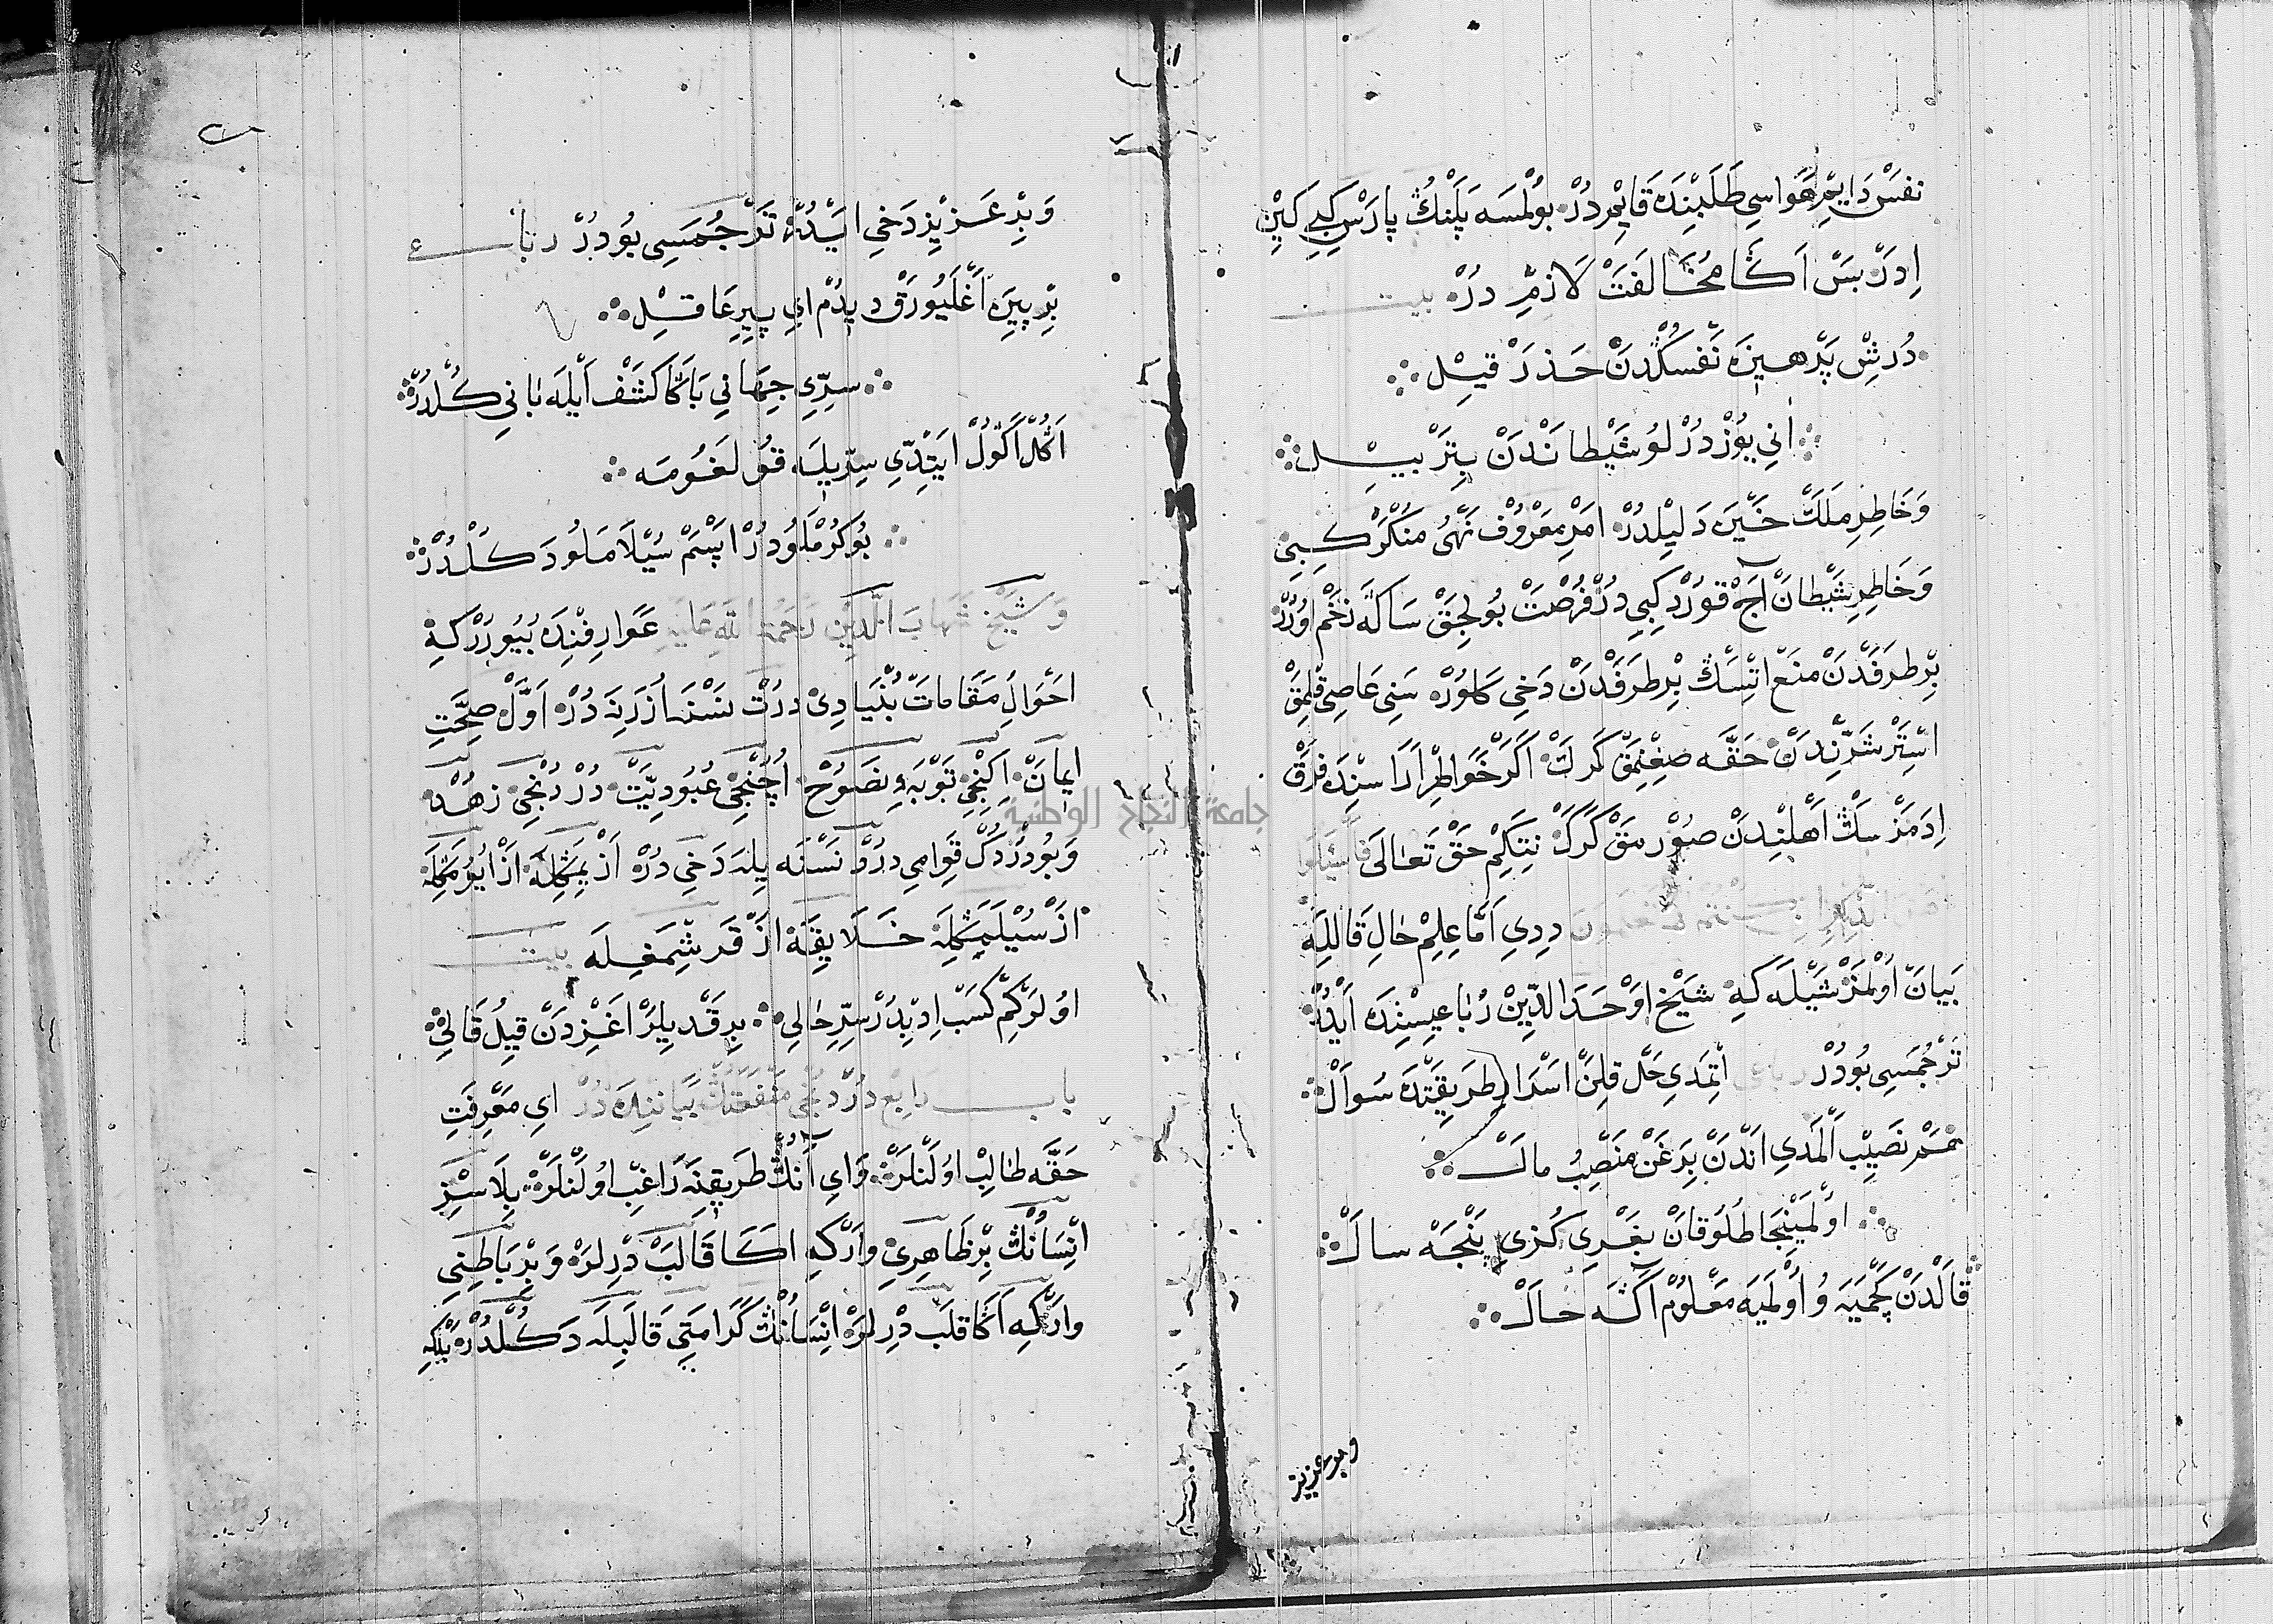 نفس دايم هواسي طلبنده قايمدر بولمسه پلنك پارس كبي كين
ادر بس اكا مخالفت لازم در بيت
دورش پرهيزه نفسكدن حذر قيل
اني يوز درلو شيطاندن بتر بيل
وخاطر ملك خيره دليلدر امر معروف نهى منكر كبي
وخاطر شيطان اج قورد كبي در فرصت بولجق ساكه زخم اورر
بر طرفدن منع اتسك بر طرفدن دخي كلور سني عاصي قلمق
استر شرندن حقه صغنمق كرك اكر خواطر اراسنده فرق
ادمزسك اهلندن صورمق كرك نتكم حق تعالى فاسئلوا
اهل الذكر ان كنتم لا تعلمون ددي اما علم حال قالله
بيان اولمز شيله كه شيخ اوحد الدين رباعيسنده ايدر
ترجمسي بودر رباعي اتمدي حل قلن اسرار طريقتده سوال
نصيب المدي اندن برغن منصب مال
اولمينجا طلو قان بغري كزي پنجه سال
قالدن كچميه و اولميه معلوم اكه حال
وبر عزيز
وبر عزيز دخي ايدر ترجمسي بودر رباعي
بر پيره اغليورق ديدم اي پير عاقل
سري جهاني باكا كشف ايله باني كلدر
اكل اول ايتدي سريله قو لغومه
بوكرملو در اپسم سيلاملو دكلدر
وشيخ شهاب الدين رحمة الله عليه عوارفنده بيورر كه
احوال مقامات بنيادي درت نسنه اوزرنه در اول صحت
ايمان اكنجي توبه نصوح اچنجي عبوديت در دردنجي زهد
وبو دردك قوامي درد نسنه يله دخي در از يمكله از ايومكله
از سيلمكله خلايقه از قرشمغله بيت
اولر كم كسب ادبدر سر حالي برقديلر اغزدن قيل قالي
باب رابع دردنجي منفعتك بياننده در اي معرفت
حقه طالب اولنلر واي انك طريقنه راغب اولنلر بلاسز
انسانك بر ظاهري واركه اكا قالب درلر وبر باطني
واركه اكا قلب درلر انسانك كرامتي قالبله دكلدر بلكه